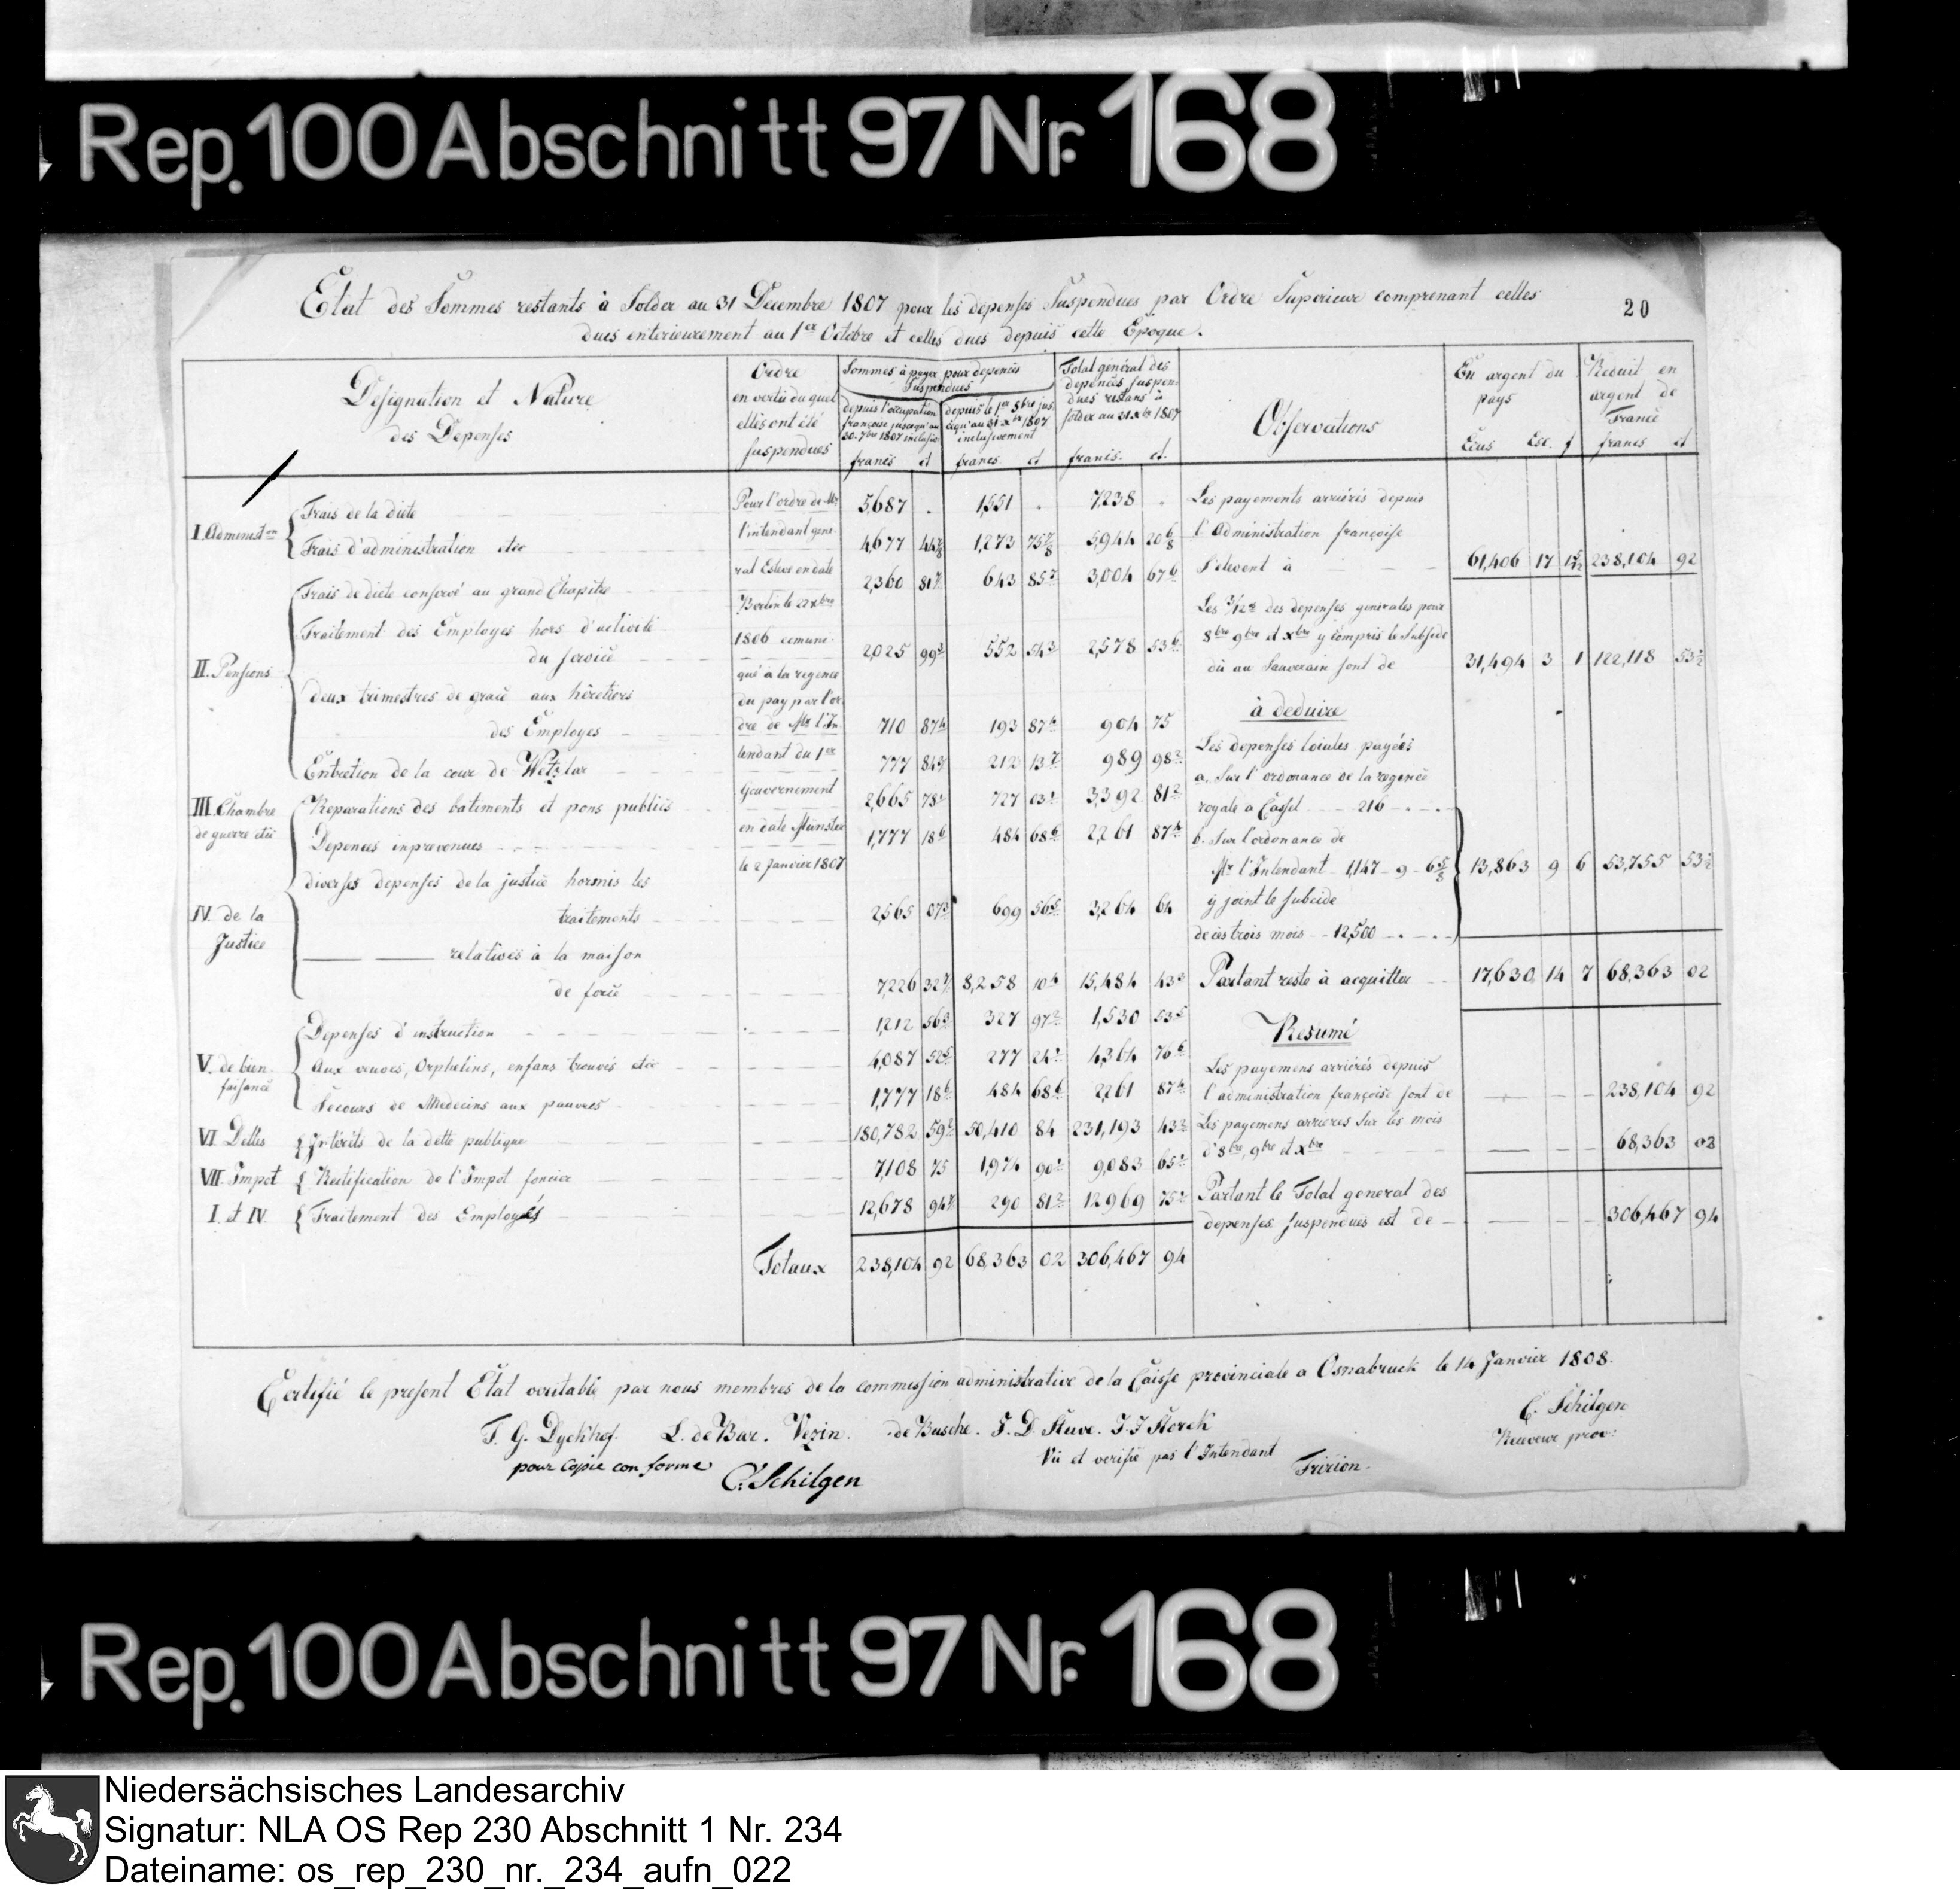 Rep. 100 Abschnitt 97 Nr. 168
Etat des Sommes restants à Solder au 31 Decembre 1807 pour les depenses Suspendues par Ordre Superieure comprenant celles
dues enterieurement au 1er Octobre et celles dues depuis cette Epoque.
20
Designation et Nature
des Depenses
Ordre
en vertu du quel
elles ont été
suspendues
Sommes à payer pour depences
Suspendues
depuis l'occupation
françoise jusequ'au
30. 7bre 1807 inclusiv
francs ct
depuis le 1er 8bre jus
cequ'au 31 xbre 1807
inclusivement
francs. ct
Total général des
depences suspen
dues restans à
solder au 31 Xbre 1807
francs. ct.
Observations
En argent du
pays
Ecus Esc. f
Reduit en
argent de
France
francs ct
I. Administon
Frais de la diete 5,687 . 1,551 . 7,238 .
Frais d'administration etcc 4,677 44 7/8 1,273 75 7/8 5,944 20 6/8
II. Pensions
Frais de diete conservé au grand Chapitre 2,360 81 7 643 85 7 3,004 67 6
Traitement des Employes hors d'activité
du service 2,025 99 3 552 54 3 2,578 53 6
deux trimestres de grace aux hêretiers
des Employes 710 87 4 193 87 4 904 75
Entretien de la cour de Wetzlar 777 84 212 13 7 989 98
III. Chambre
de guerre etcc
Reparations des batiments et pons publics 2,665 78 727 03 3,392 81
Depences inprevenues 1,777 18 6 484 68 6 2,261 87 4
IV. de la
Justice
diverses depenses de la justice hormis les
traitements 2,565 07 699 56 5 3,264 64
relatives à la maison
de force 7,226 32 8,258 10 4 15,484 43
V. de bien
faisance
Depenses d'instruction 1,212 56 327 97 1,530 53
Aux veuves, Orphelins, enfans trouvés etcc 4,087 52 277 24 4,364 76 6
Secours de Medecins aux pauvres 1,777 18 6 484 68 6 2,261 87 4
VI. Dettes Intérêts de la dette publique 180,782 59 50,410 84 231,193 43
VII. Impot Rectification de l'Impot foncier 7,108 75 1,974 90 9,083 65
I. et IV. Traitement des Employés 12,678 94 290 81 12,969 75
Totaux 238,104 92 68,363 02 306,467 94
Pour l'ordre de Mr
l'intendant gene
ral Esteve en date
Berlin le 22 xbre
1806 comuni
qué à la regence
du pay par l'or
dre de Mr l'In
tendant du 1er
Gouvernement
en date Münster
le 2 Janvier 1807
Les payements arriérés depuis
l'Administration françoise
S'elevent à 61,406 17 1 238,104 92
Les 3/12es des depenses generales pour
8bre 9bre et xbre y compris le Subside
dû au Sauverain sont de 31,494 3 1 122,118 53
à deduire
Les depenses loiales payées
a. Sur l'ordonance de la regence
royale a Cassel 216 - . - .
b. Sur l'ordonance de
Mr l'Intendant 1,147 - 9 - 6 5/8 13,863 9 6 53,755 53
y joint le subcide
de ces trois mois - 12,500 - . - .
Partant reste à acquitter 17,630 14 7 68,363 02
Resumé
Les payemens arriérés depuis
l'administration françoise sont de 238,104 92
Les payemens arrieres sur les mois
d'8bre, 9bre et xbre 68,363 02
Partant le Total general des
depenses suspendues est de 306,467 94
Certifié le present Etat veritable par nous membres de la commission administrative de la Caisse provinciale a Osnabruck le 14 Janvier 1808.
T. G. Dyckhof. L. de Bar. Vezin. de Busche. F. D. Stuve. J. J Storck
C. Schilgen
Receveur prov:
pour Copie conforme
C. Schilgen
Vu et verifié par l'Intendant
Fririon.
Rep. 100 Abschnitt 97 Nr. 168
Niedersächsisches Landesarchiv
Signatur: NLA OS Rep 230 Abschnitt 1 Nr. 234
Dateiname: os_rep_230_nr._234_aufn_022